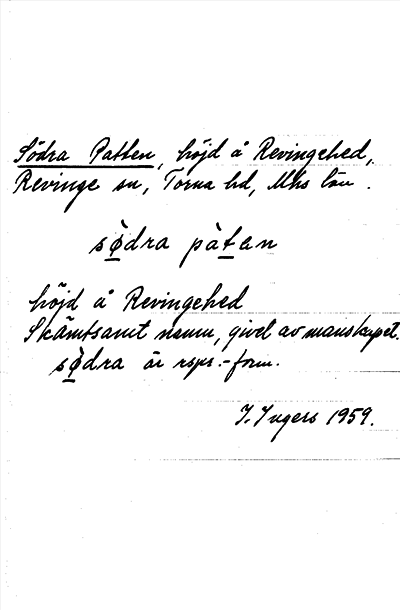 Södra Patten, höjd å Revingehed,
Revinge sn, Torna hd, Mhs län.
sø̀dra pàtan
höjd å Revingehed
Skämtsamt namn, givet av manskapet.
sø̀dra är rsps.-form.
I. Ingers 1959.